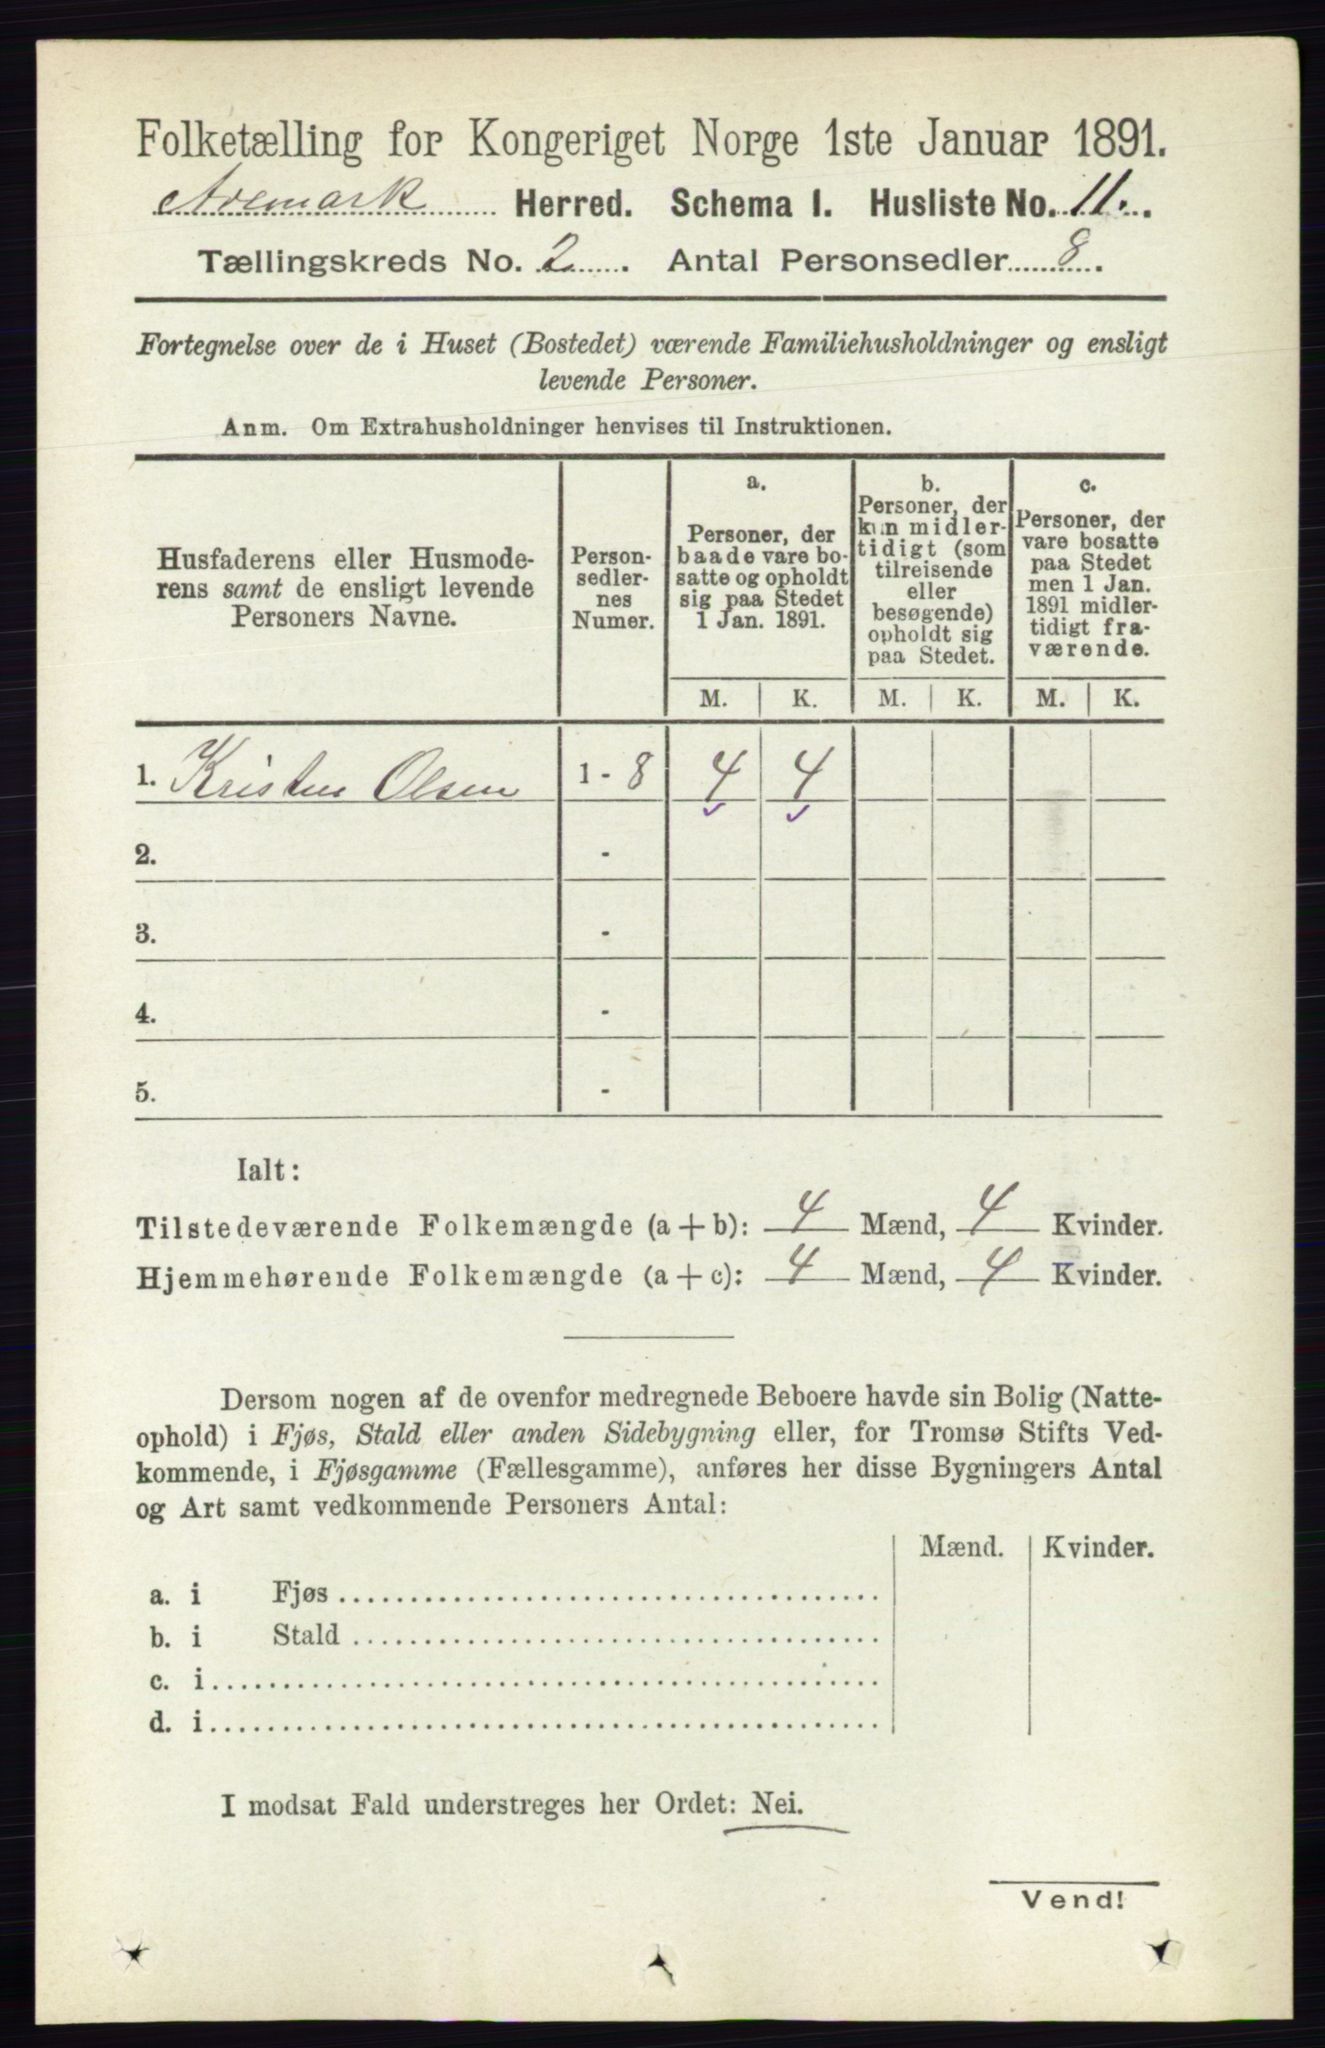 Folketælling for Kongeriget Norge 1ste Januar 1891.
Aremark Herred. Schema I. Husliste No. 11.
Tællingskreds No. 2. Antal Personsedler 8.
Fortegnelse over de i Huset (Bostedet) værende Familiehusholdninger og ensligt
levende Personer.
Anm. Om Extrahusholdninger henvises til Instruktionen.
Husfaderens eller Husmode-
rens samt de ensligt levende
Personers Navne.
Person-
sedler-
nes
Numer.
a.
Personer, der
baade vare bo-
satte og opholdt
sig paa Stedet
1 Jan. 1891.
b.
Personer, der
kun midler-
tidigt (som
tilreisende
eller
besøgende)
opholdt sig
paa Stedet.
c.
Personer, der
vare bosatte
paa Stedet
men 1 Jan.
1891 midler-
tidigt fra-
værende.
M. K. M. K. M. K.
1. Kristen Olsen 1 - 8 4 4
2. -
3. -
4. -
5. -
Ialt:
Tilstedeværende Folkemængde (a + b): 4 Mænd, 4 Kvinder.
Hjemmehørende Folkemængde (a + c): 4 Mænd, 4 Kvinder.
Dersom nogen af de ovenfor medregnede Beboere havde sin Bolig (Natte-
ophold) i Fjøs, Stald eller anden Sidebygning eller, for Tromsø Stifts Ved-
kommende, i Fjøsgamme (Fællesgamme), anføres her disse Bygningers Antal
og Art samt vedkommende Personers Antal:
Mænd. Kvinder.
a. i Fjøs
b. i Stald
c. i
d. i
I modsat Fald understreges her Ordet: Nei.
Vend!